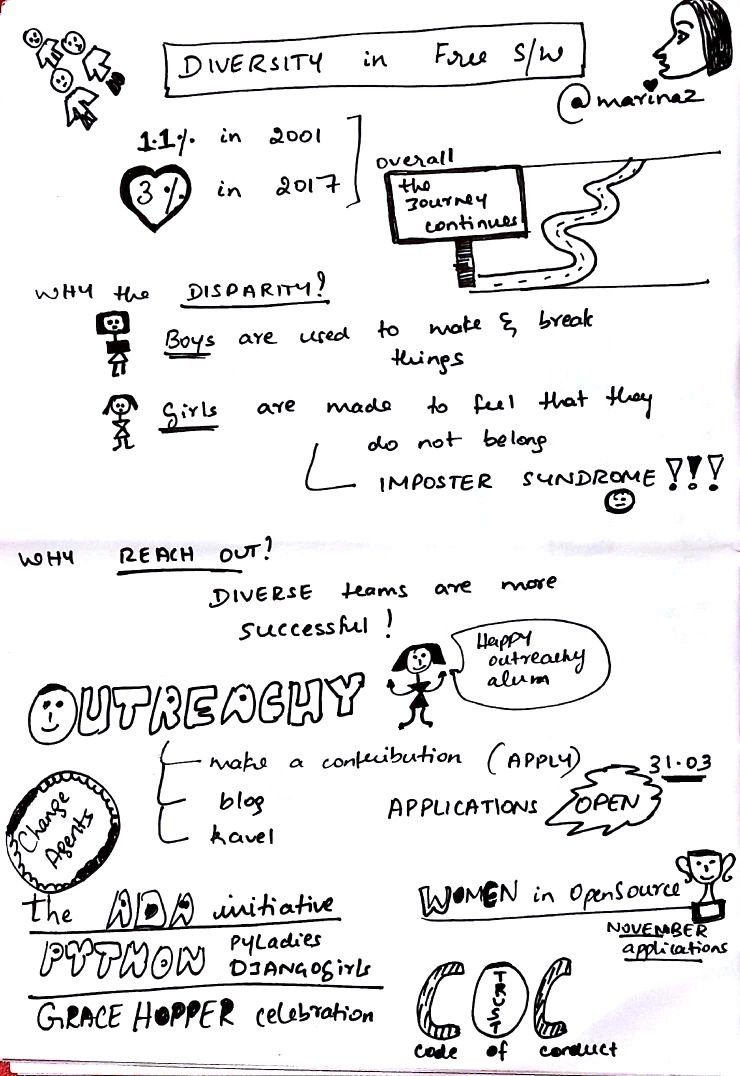 DIVERSITY in Free S/W
@marinaz
1.1% in 2001
3% in 2017
overall
the
Journey
continues
WHY the DISPARITY?
Boys are used to make & break
things
Girls are made to feel that they
do not belong
IMPOSTER SYNDROME !!!
WHY REACH OUT?
DIVERSE teams are more
successful!
Happy
outreachy
alum
OUTREACHY
make a contribution (APPLY)
31.03
blog
APPLICATIONS OPEN
travel
Change
Agents
the ADA initiative
WOMEN in OpenSource
NOVEMBER
applications
PYTHON PyLadies
DJANGOgirls
GRACE HOPPER celebration
COC
TRUST
code of conduct